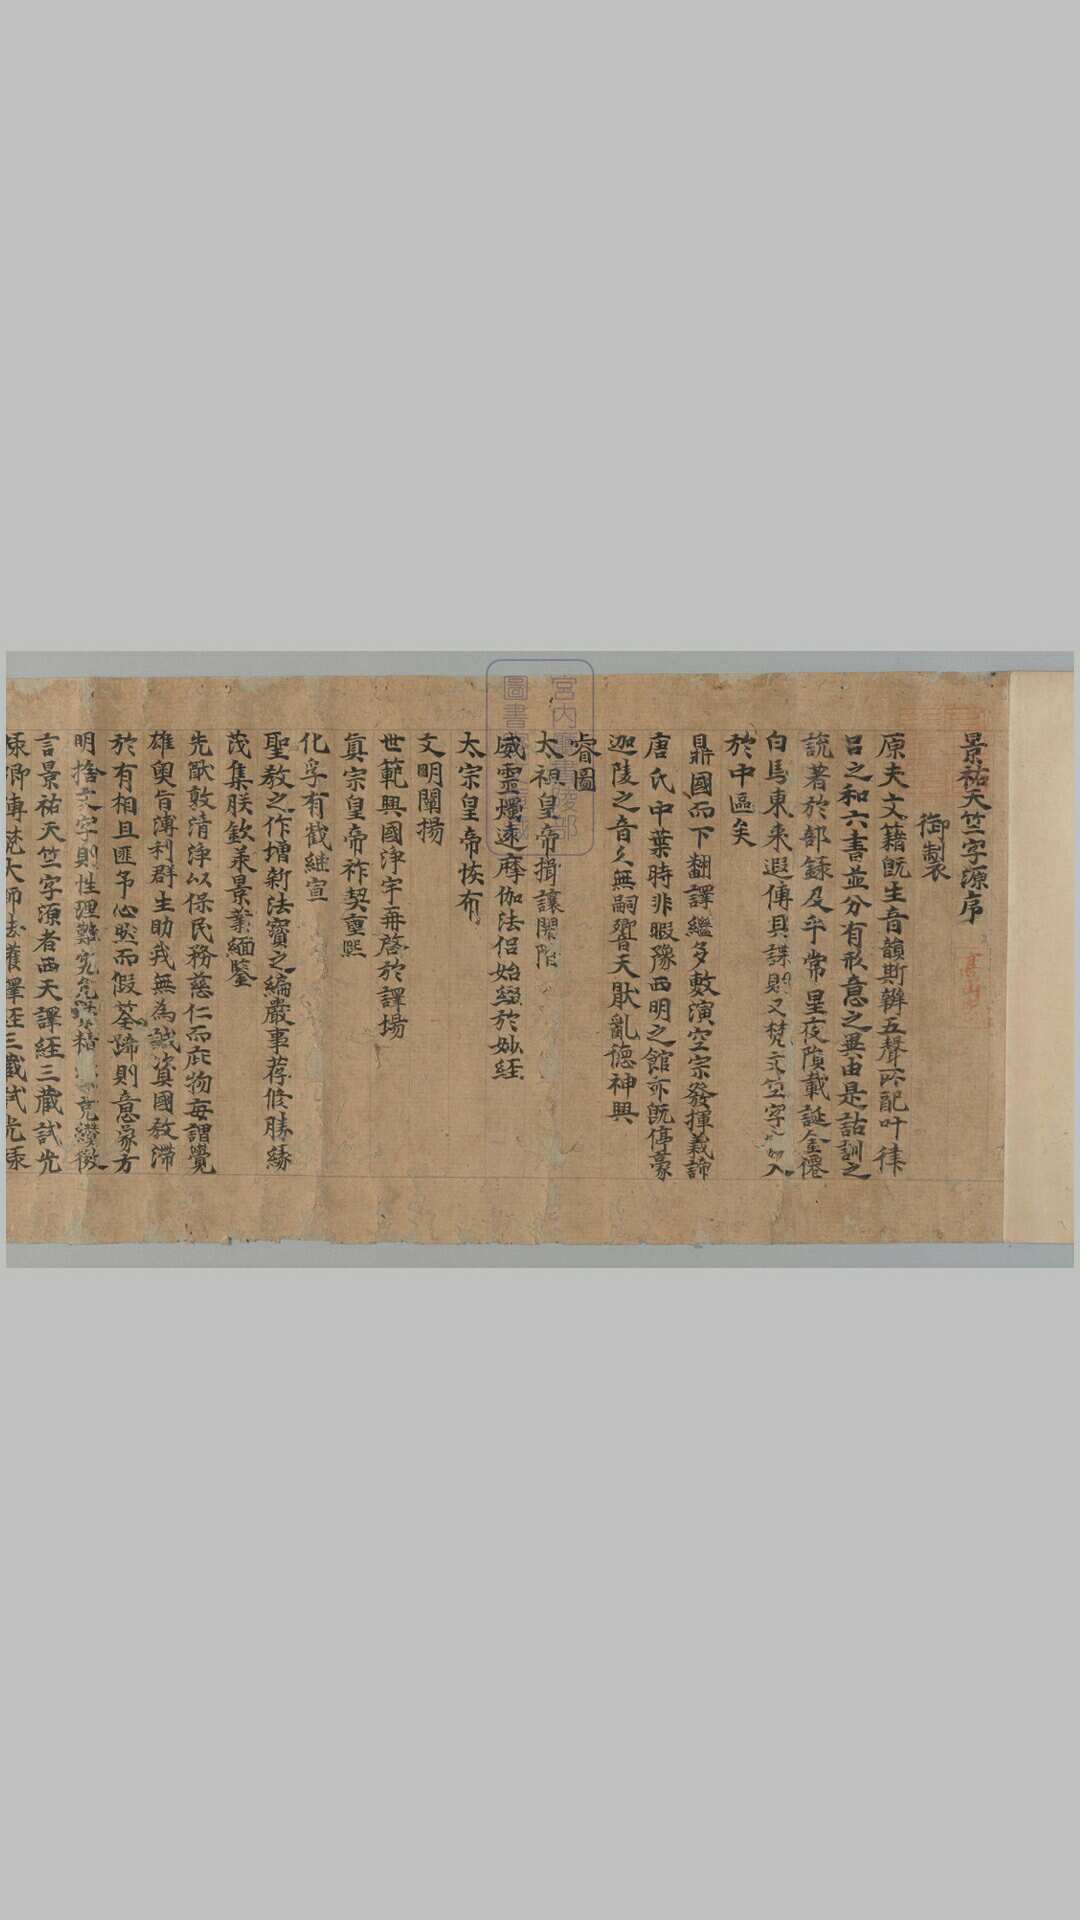 景祐天竺字源序
御製
原夫文籍既生音韻斯辯五聲所配叶律
呂之和六書並分有形意之異由是詁訓之
說著於部錄及乎常星夜隕載誕金僊
白馬東來遐傳具諜則又梵文竺字入
於中區矣
鼎國而下翻譯繼多敷演空宗發揮義諦
唐氏中葉時非暇豫西明之館亦既停豪
迦陵之音久無嗣響天猒亂德神興
睿圖
太祖皇帝揖讓開階
威靈燭遠摩伽法侶始綴於妙經
太宗皇帝恢布
文明闡揚
世範興國淨宇再啓於譯場
真宗皇帝祚契重熙
化孚有截繼宣
聖教之作增新法寶之編嚴事荐修勝緣
茂集朕欽承景業緬鑒
先猷敦清淨以保民務慈仁而庇物每謂覺
雄奧旨溥利群生助我無為誠資國教滯
於有相且匪予心然而假筌蹄則意象方
明捨文字則性理難究精克纘徽
言景祐天竺字源者西天譯經三藏試光
祿卿傳梵大師法護譯經三藏試光祿
宮內書陵部
圖書